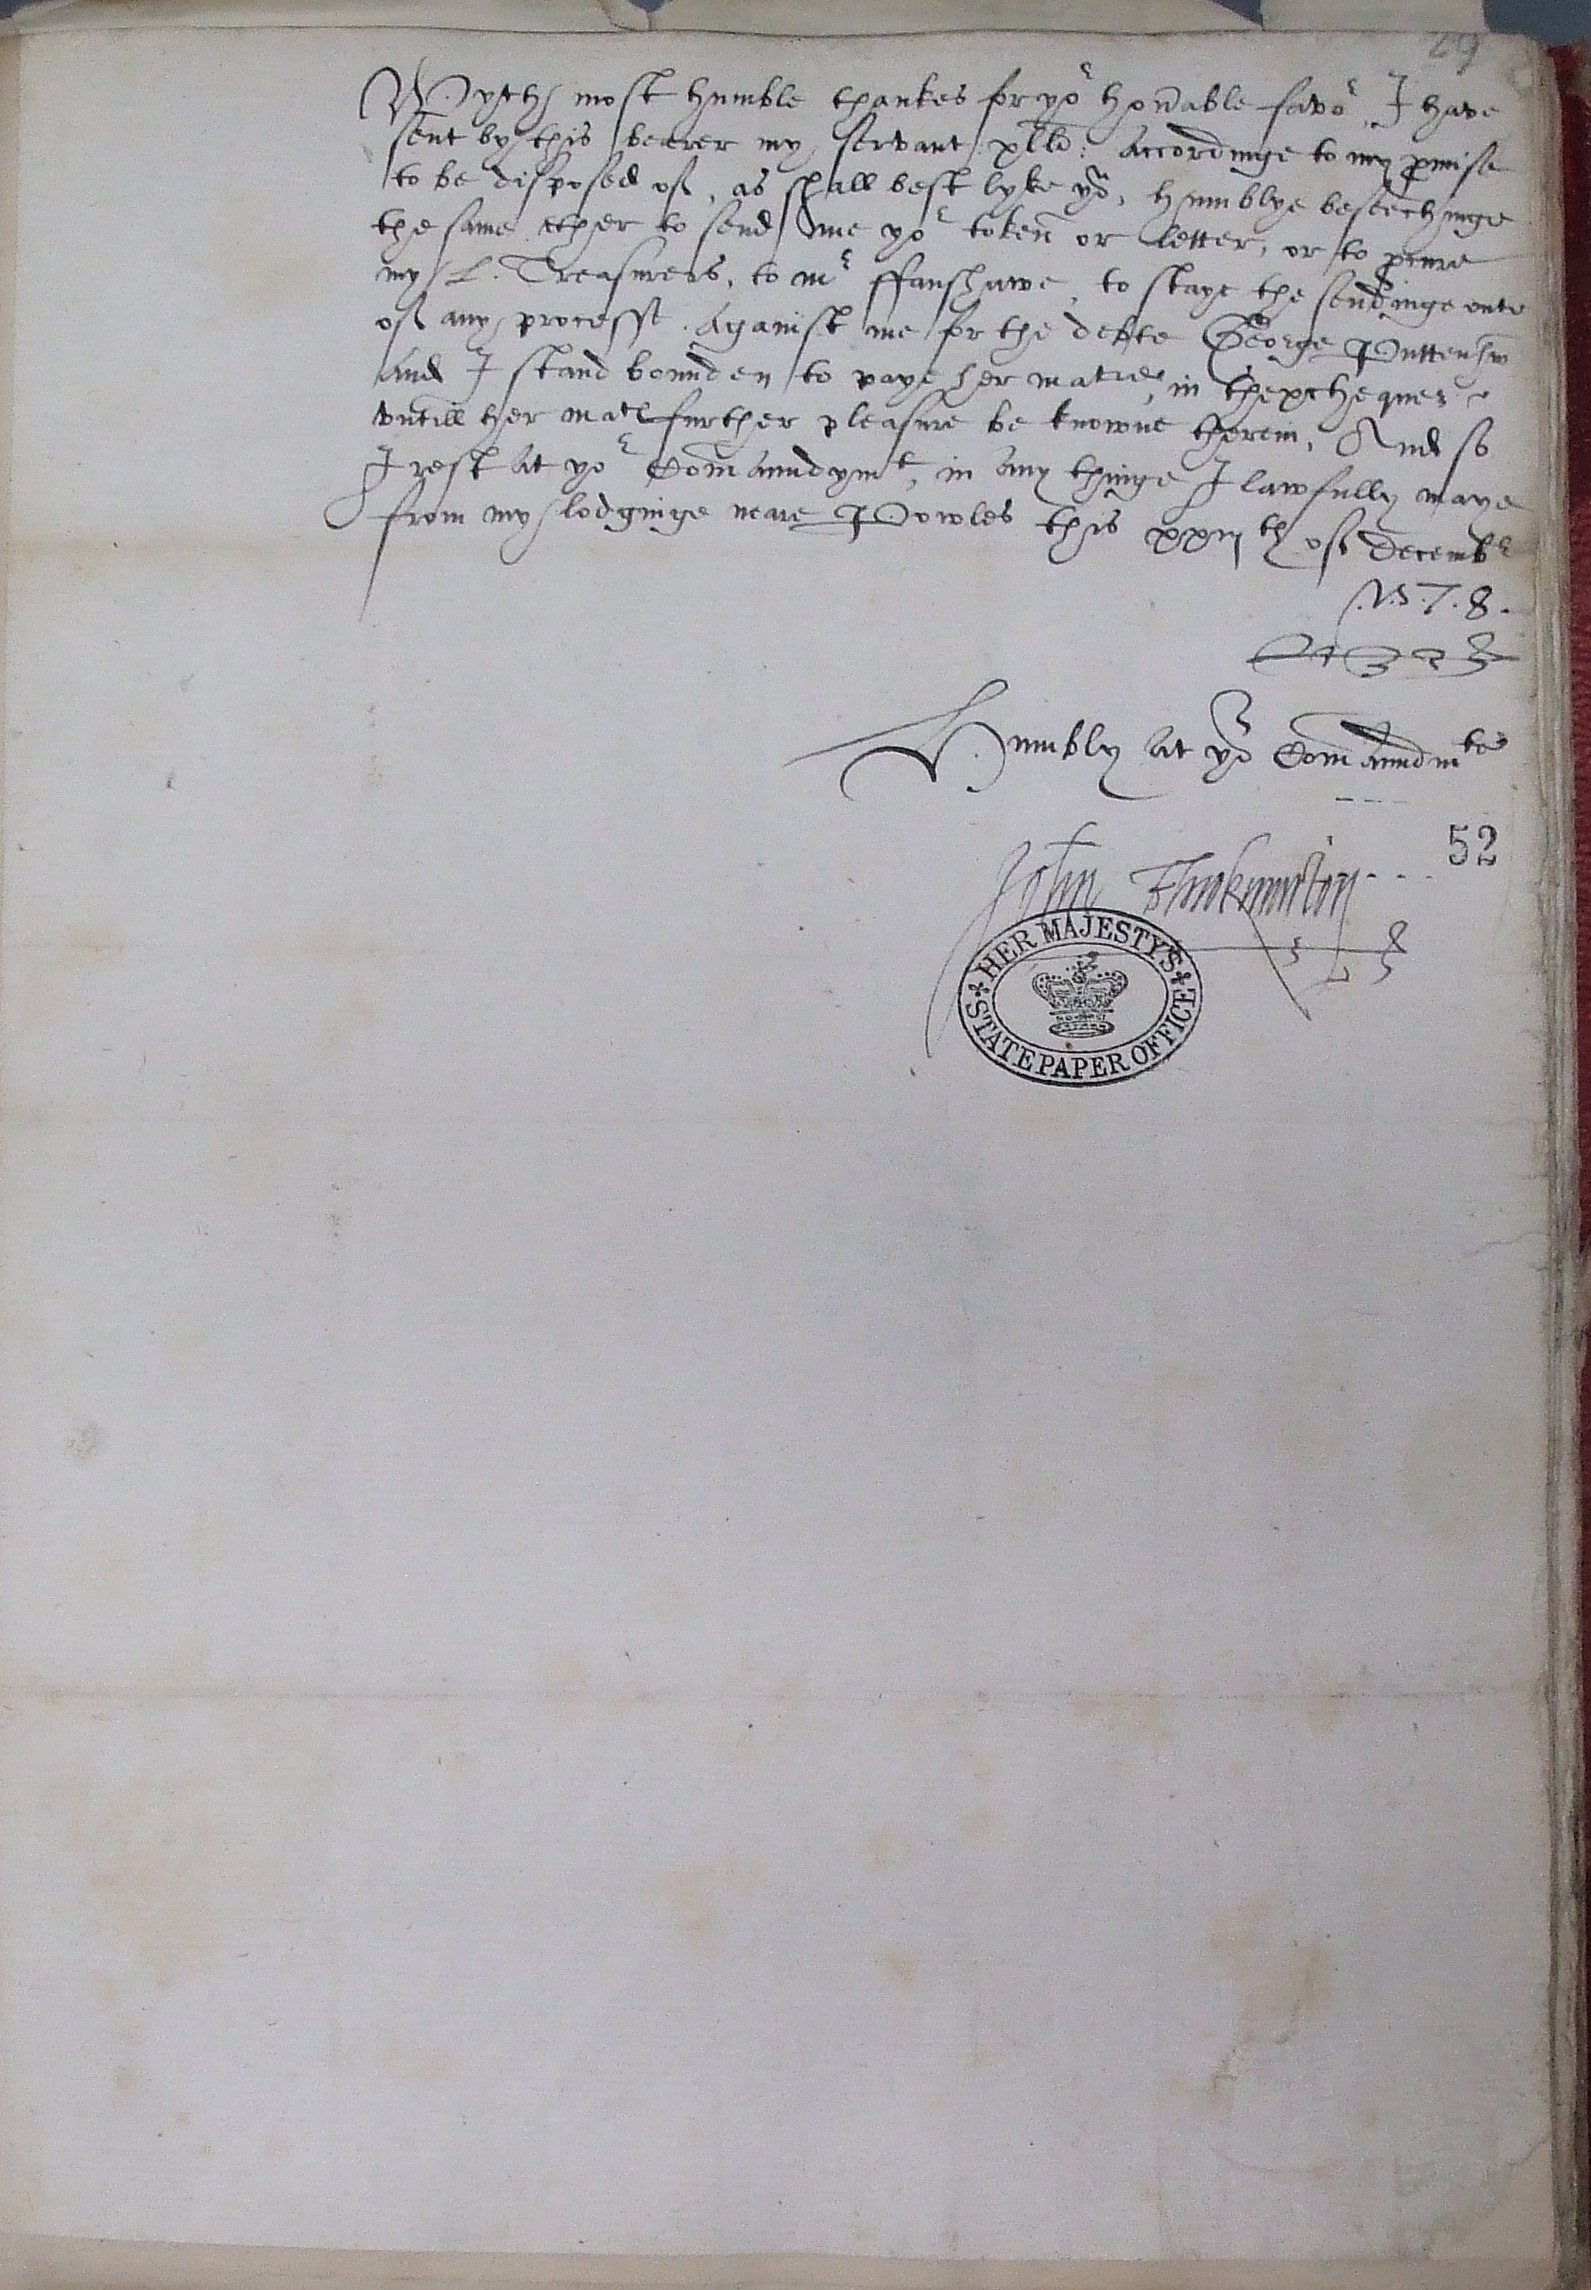 29
Wyth most humble thankes for yor honable favor, I have
sent by this bearer my servant xlli: Accordinge to my pmise
to be disposed of, as shall best lyke yo, humblye beseechinge
the same ether to send me yor token or letter, or to pcure
my L. Treasurers, to mr ffanshawe, to staye the sendinge oute
of any processe Against me for the debte George Puttenhm
And I stand bounden to paye her matie, in thexchequer
vntill her maties further pleasure be knowne therein, And so
I rest At yor Comaundymt, in Any thinge I lawfully maye
from my lodginge neare Powles this xxiijth of Decembr
.1.5.7.8.
Humbly At yor Comaundmte
52
John Throkmorton
HER MAJESTY'S
STATE PAPER OFFICE